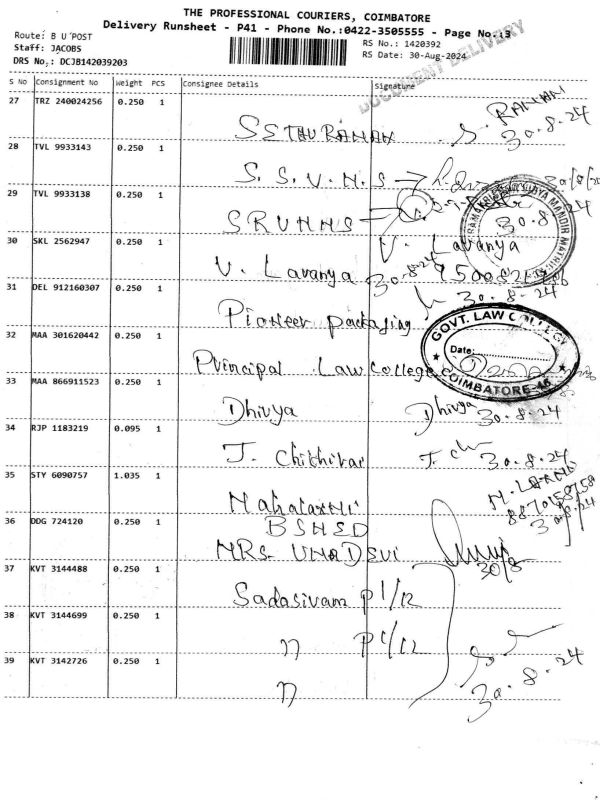 THE PROFESSIONAL COURIERS, COIMBATORE
Delivery Runsheet - P41 - Phone No.:0422-3505555 - Page No.:3
Route: B U POST
Staff: JACOBS
DRS No,: DCJB142039203
RS No.: 1420392
RS Date: 30-Aug-2024
DOCUMENT DELIVERY
S No Consignment No Weight PCS Consignee Details Signature
27 TRZ 240024256 0.250 1
SETHURAMAN S. RAMAN 30.8.24
28 TVL 9933143 0.250 1
S. S. V. N. S 30/8/24
29 TVL 9933138 0.250 1
SRVNHS 30.8.24
30 SKL 2562947 0.250 1
V. Lavanya V. Lavanya 30.8.24
31 DEL 912160307 0.250 1
Pioneer packaging 30.8.24
32 MAA 301620442 0.250 1
Principal Law College
GOVT. LAW COLLEGE
Date:
COIMBATORE-46
33 MAA 866911523 0.250 1
Dhivya Dhivya 30.8.24
34 RJP 1183219 0.095 1
J. J. Ch 30.8.24
35 STY 6090757 1.035 1
Mahalaxmi
8870158758
30.8.24
36 DDG 724120 0.250 1
BSHED
MRS. UMADEVI 30/8
37 KVT 3144488 0.250 1
Sadasivam P1/12
38 KVT 3144699 0.250 1
n P1/12
39 KVT 3142726 0.250 1
n 30.8.24